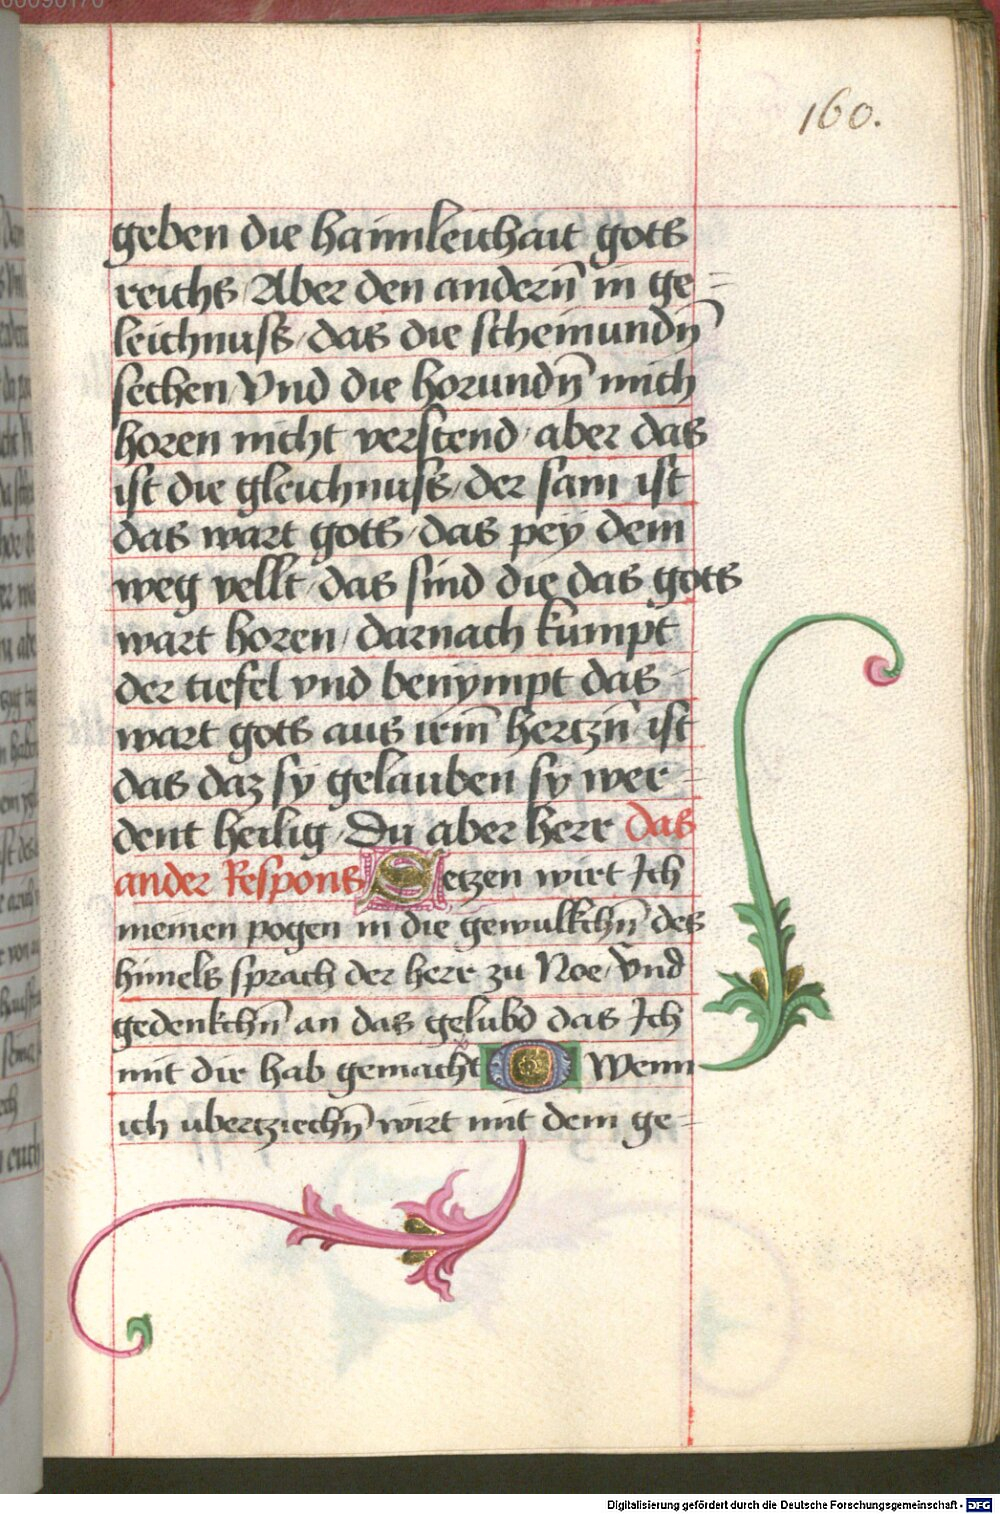 160.
geben die haimleichait gots
reichs / Aber den andern̄ in ge=
leichnuss / das die scheinundn̄
sechen / Vnd die horundn̄ mich
horen nicht verstend / aber das
ist die gleichnuss / der sam ist
das wart gots / das pey dem
weg vellt / das sind die das gots
wart horen / darnach kumpt
der tiefel vnd benympt das
wart gots aus irm̄ hertzn̄ ist
das daz sy gelauben sy wer=
dent heilig / Du aber herr das
ander Respons Setzen wirt Ich
meinen pogen in die gewulkchn̄ des
himels sprach der herr zu Noe / Vnd
gedenkchn̄ an das gelubd das Ich
mit dir hab gemacht Wenn
ich ubertziechn̄ wirt mit dem ge=
Digitalisierung gefördert durch die Deutsche Forschungsgemeinschaft - DFG